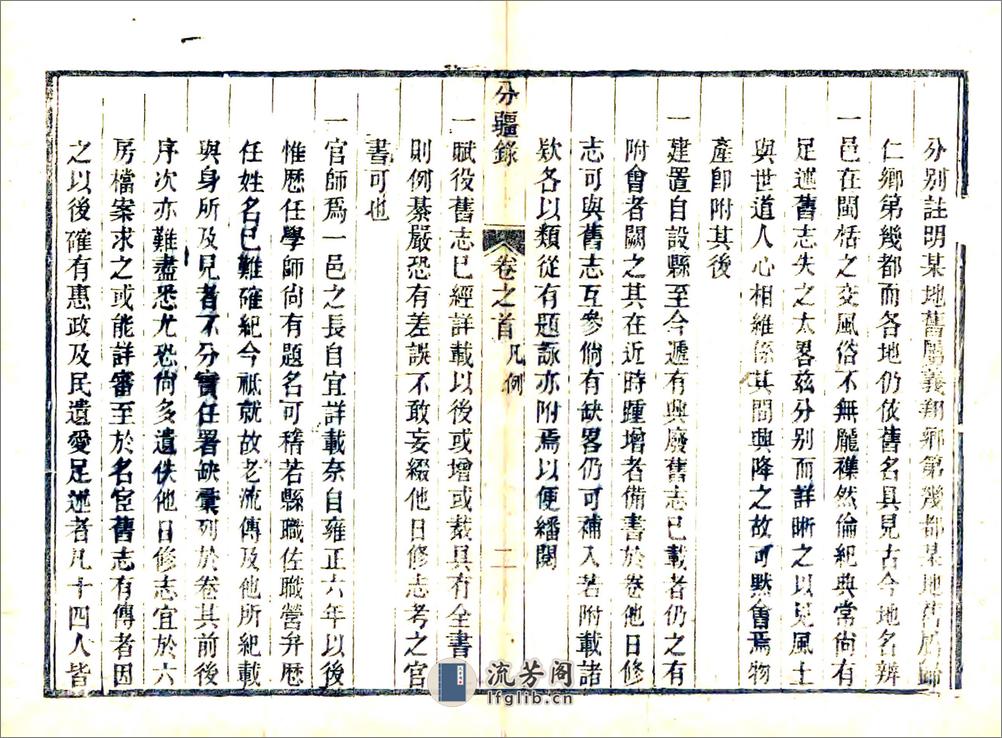 分別註明某地舊屬義翔鄉第幾都某地舊屬歸
仁鄉第幾都而各地仍依舊名具見古今地名辨
一邑在閩栝之交風俗不無龐襍然倫紀典常尙有
足述舊志失之太畧兹分别而詳晰之以見風土
與世道人心相維係其間興降之故可默會焉物
產卽附其後
一建置自設縣至今遞有興廢舊志已載者仍之有
附會者闕之其在近時踵增者備書於卷他日修
志可與舊志互參倘有缺畧仍可補入若附載諸
欵各以類從有題詠亦附焉以便繙閱
分疆錄
卷之首
凡例
二
一賦役舊志已經詳載以後或增或裁具有全書
則例綦嚴恐有差誤不敢妄綴他日修志考之官
書可也
一官師爲一邑之長自宜詳載奈自雍正六年以後
惟歷任學師尙有題名可稽若縣職佐職營弁歷
任姓名已難確紀今祗就故老流傳及他所紀載
與身所及見者不分實任署缺彙列於卷其前後
序次亦難盡悉尤恐尙多遺佚他日修志宜於六
房檔案求之或能詳審至於名宦舊志有傳者因
之以後確有惠政及民遺愛足述者凡十四人皆
流芳阁
lfglib.cn